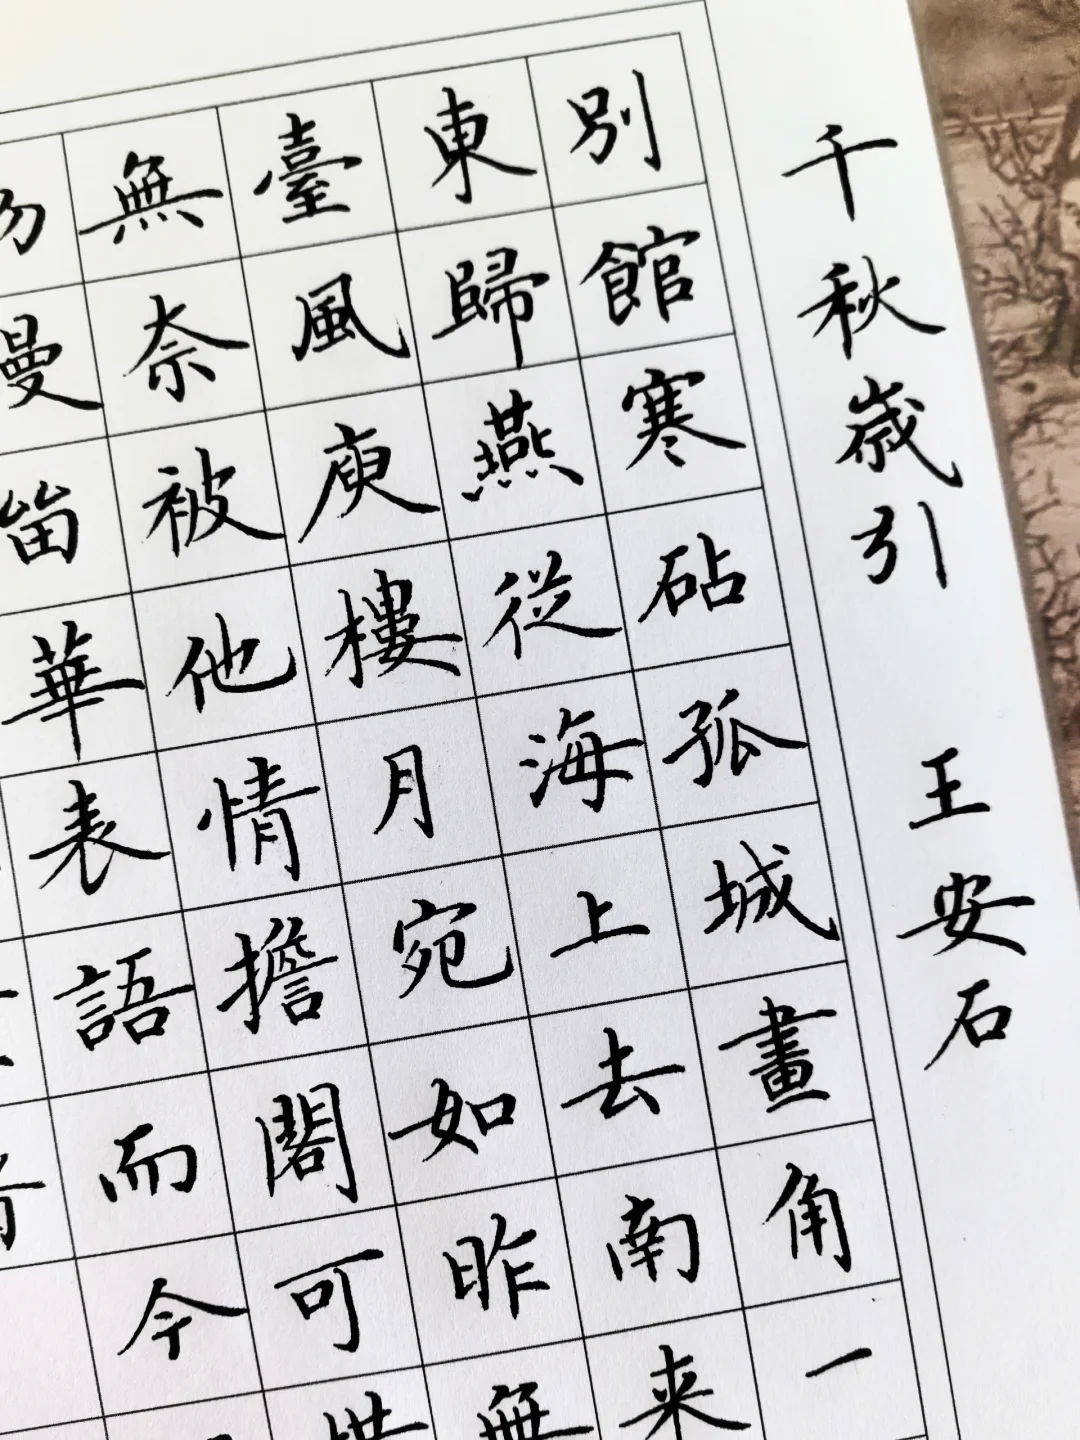 千秋嵗引 王安石
別館寒砧孤城畫角一
東歸燕從海上去南来
臺風庾樓月宛如昨無
無奈被他情擔閣可惜
留華表語而今